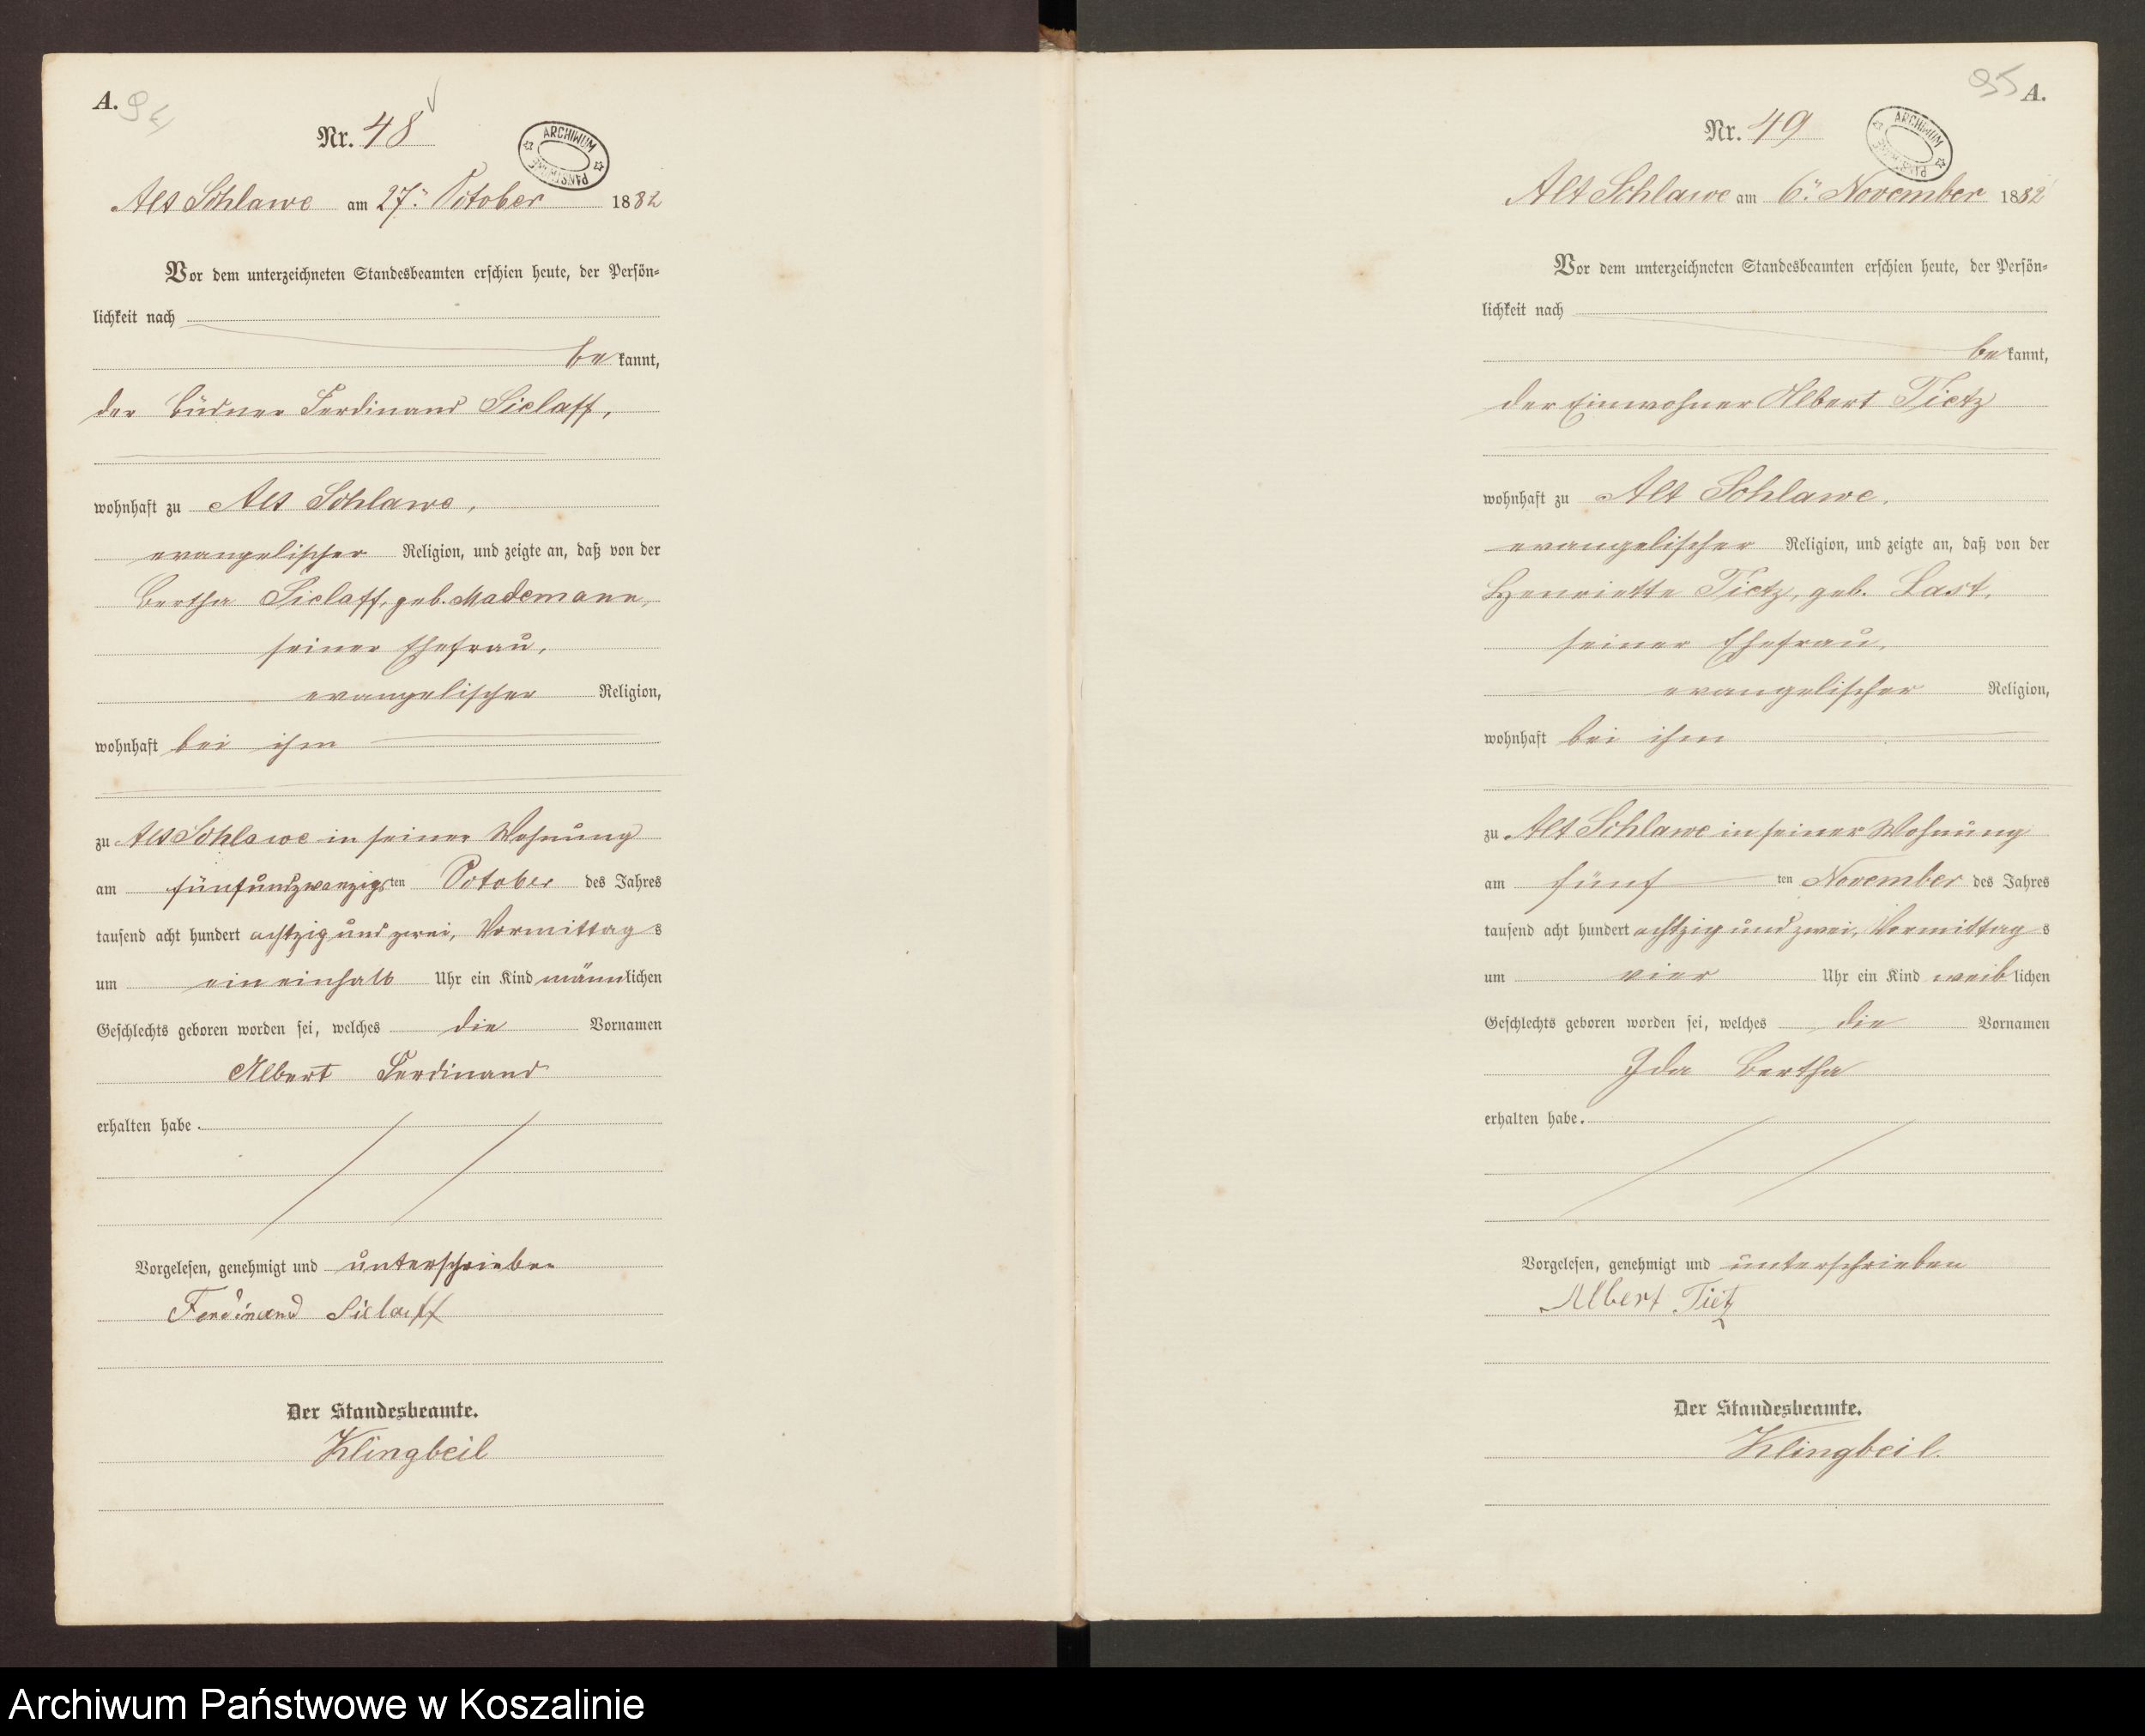 A. 94
Nr. 48
ARCHIWUM PAŃSTWOWE
Alt Schlawe am 27ten October 1882
Vor dem unterzeichneten Standesbeamten erschien heute, der Persön-
lichkeit nach
bekannt,
der Büdner Ferdinand Sielaff,
wohnhaft zu Alt Schlawe,
evangelischer Religion, und zeigte an, daß von der
Bertha Sielaff, geb. Mademann,
seiner Ehefrau,
evangelischer Religion,
wohnhaft bei ihm
zu Alt Schlawe in seiner Wohnung
am fünfundzwanzigsten October des Jahres
tausend acht hundert achtzig und zwei, Vormittags
um ein einhalb Uhr ein Kind männlichen
Geschlechts geboren worden sei, welches die Vornamen
Albert Ferdinand
erhalten habe.
Vorgelesen, genehmigt und unterschrieben
Ferdinand Sielaff
Der Standesbeamte.
Klingbeil
95 A.
Nr. 49
ARCHIWUM PAŃSTWOWE
Alt Schlawe am 6ten November 1882
Vor dem unterzeichneten Standesbeamten erschien heute, der Persön-
lichkeit nach
bekannt,
der Einwohner Albert Tietz
wohnhaft zu Alt Schlawe,
evangelischer Religion, und zeigte an, daß von der
Henriette Tietz, geb. Last,
seiner Ehefrau,
evangelischer Religion,
wohnhaft bei ihm
zu Alt Schlawe in seiner Wohnung
am fünften November des Jahres
tausend acht hundert achtzig und zwei, Vormittags
um vier Uhr ein Kind weiblichen
Geschlechts geboren worden sei, welches die Vornamen
Ida Bertha
erhalten habe.
Vorgelesen, genehmigt und unterschrieben
Albert Tietz
Der Standesbeamte.
Klingbeil.
Archiwum Państwowe w Koszalinie